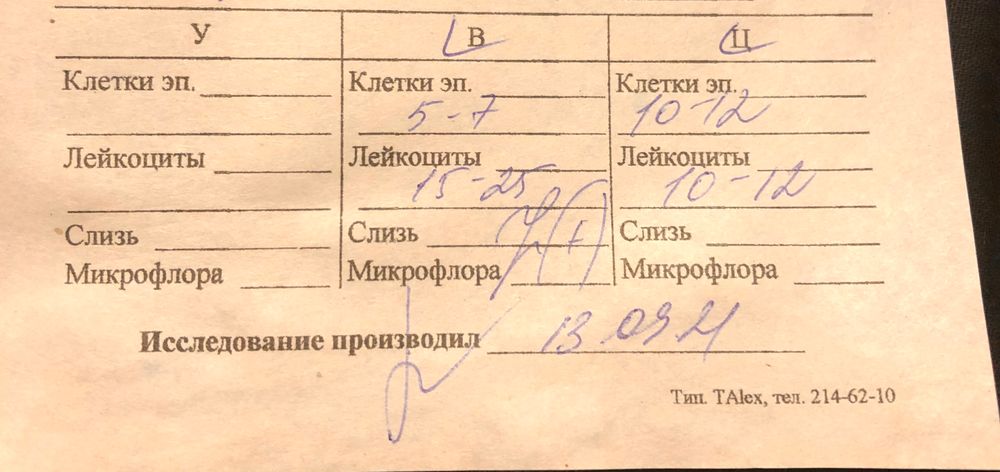 У В Ц
Клетки эп. Клетки эп. Клетки эп.
5-7 10-12
Лейкоциты Лейкоциты Лейкоциты
15-25 10-12
Слизь Слизь (+) Слизь
Микрофлора Микрофлора Микрофлора
Исследование производил 13.09.21
Тип. TAlex, тел. 214-62-10